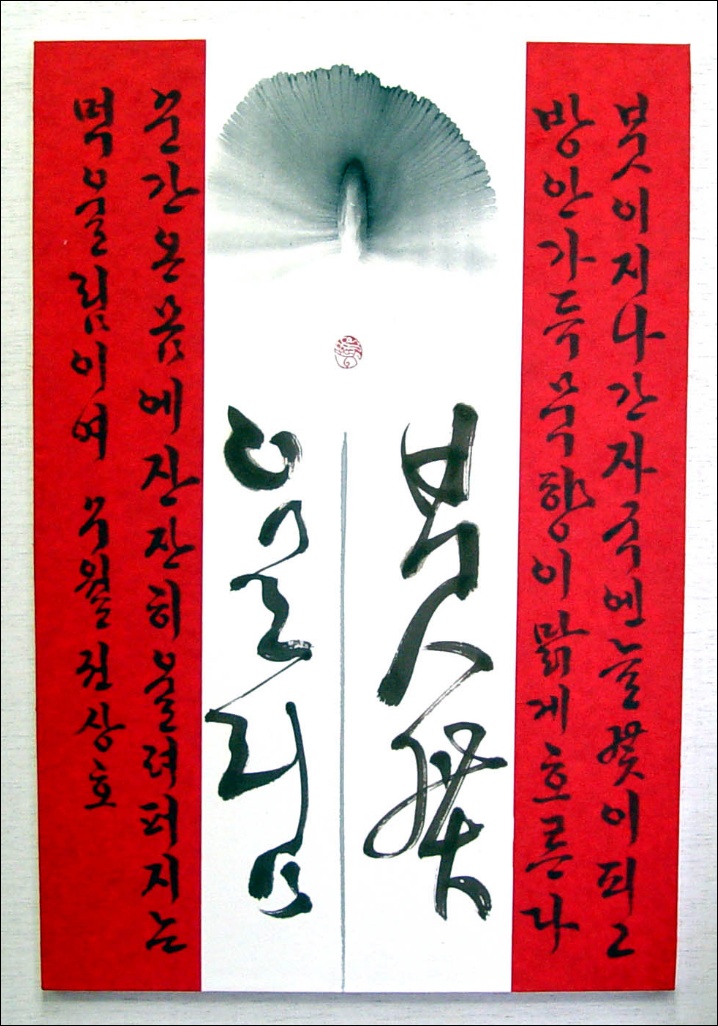 붓이지나간자국엔늘꽃이피고
방안가득묵향이맑게흐른다
붓꽃
울림
순간온몸에잔잔히울려퍼지는
먹울림이여 권상호